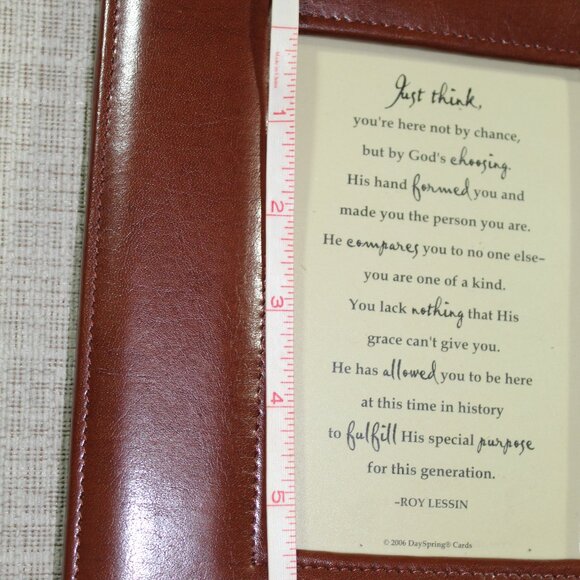 Just think,
you're here not by chance,
but by God's choosing.
His hand formed you and
made you the person you are.
He compares you to no one else–
you are one of a kind.
You lack nothing that His
grace can't give you.
He has allowed you to be here
at this time in history
to fulfill His special purpose
for this generation.
–ROY LESSIN
© 2006 DaySpring® Cards
1
2
3
4
5